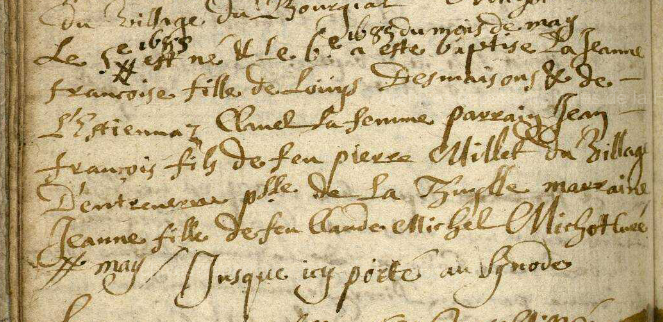 du Village du Bourgiat
Le 5e 1683 est né & le 6e 1683 du mois de may a este baptise La Jeanne
françoise fille de Louys Desmaisons & de
L'Estiennaz Clauel sa femme parrain Jean
françois fils de feu pierre Millet du Village
D'entreuerne psse de La Thuylle marraine
Jeanne fille de feu Claude Michel Michot curé
# may / Jusque icy porté au Synode